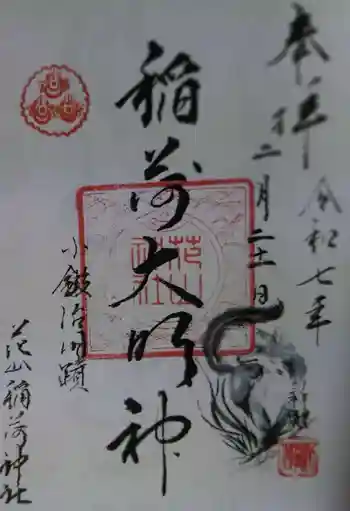 奉拝
令和七年
十二月二十一日
稲荷大明神
小鍛冶旧蹟
花山稲荷神社
花山
稲社